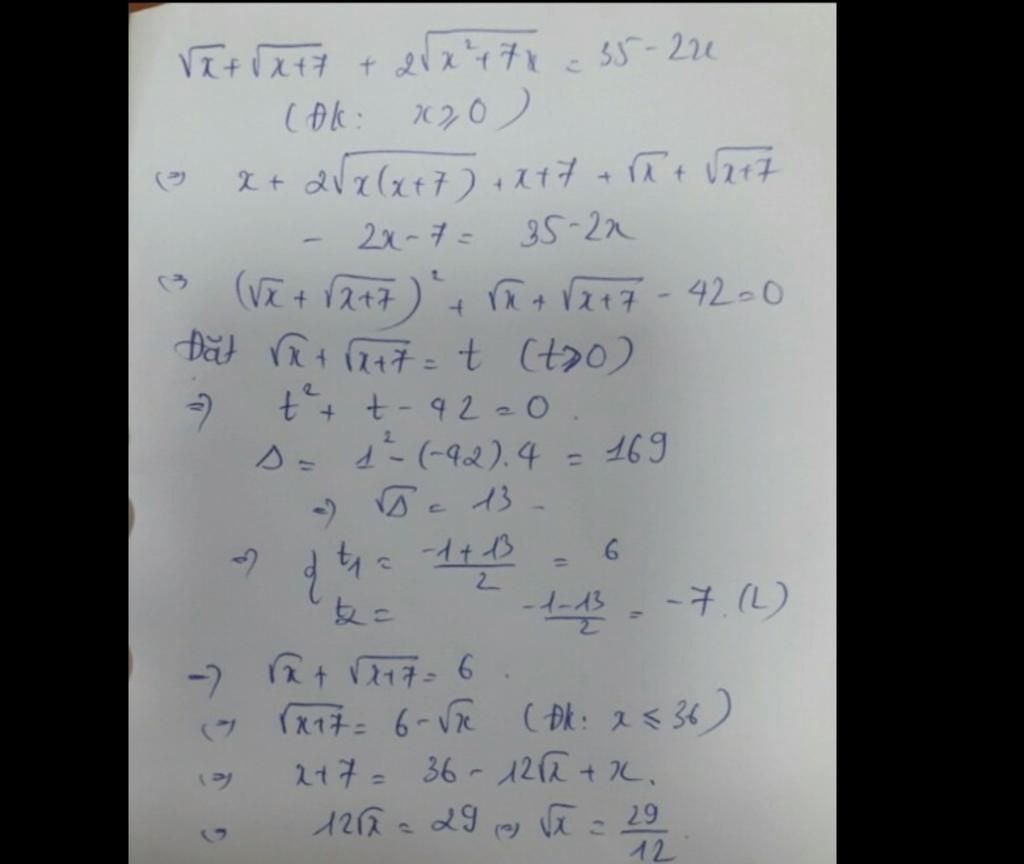 √x + √(x+7) + 2√(x²+7x) = 35 - 2x
(Đk: x ⩾ 0)
(=) x + 2√(x(x+7)) + x+7 + √x + √(x+7)
- 2x - 7 = 35 - 2x
(=) (√x + √(x+7))² + √x + √(x+7) - 42 = 0
Đặt √x + √(x+7) = t (t ⩾ 0)
=) t² + t - 42 = 0.
Δ = 1² - (-42).4 = 169
=) √Δ = 13
=) { t₁ = (-1+13)/2 = 6
t₂ = (-1-13)/2 = -7. (L)
-) √x + √(x+7) = 6.
(=) √(x+7) = 6 - √x (Đk: x ⩽ 36)
(=) x+7 = 36 - 12√x + x.
(=) 12√x = 29 (=) √x = 29/12.